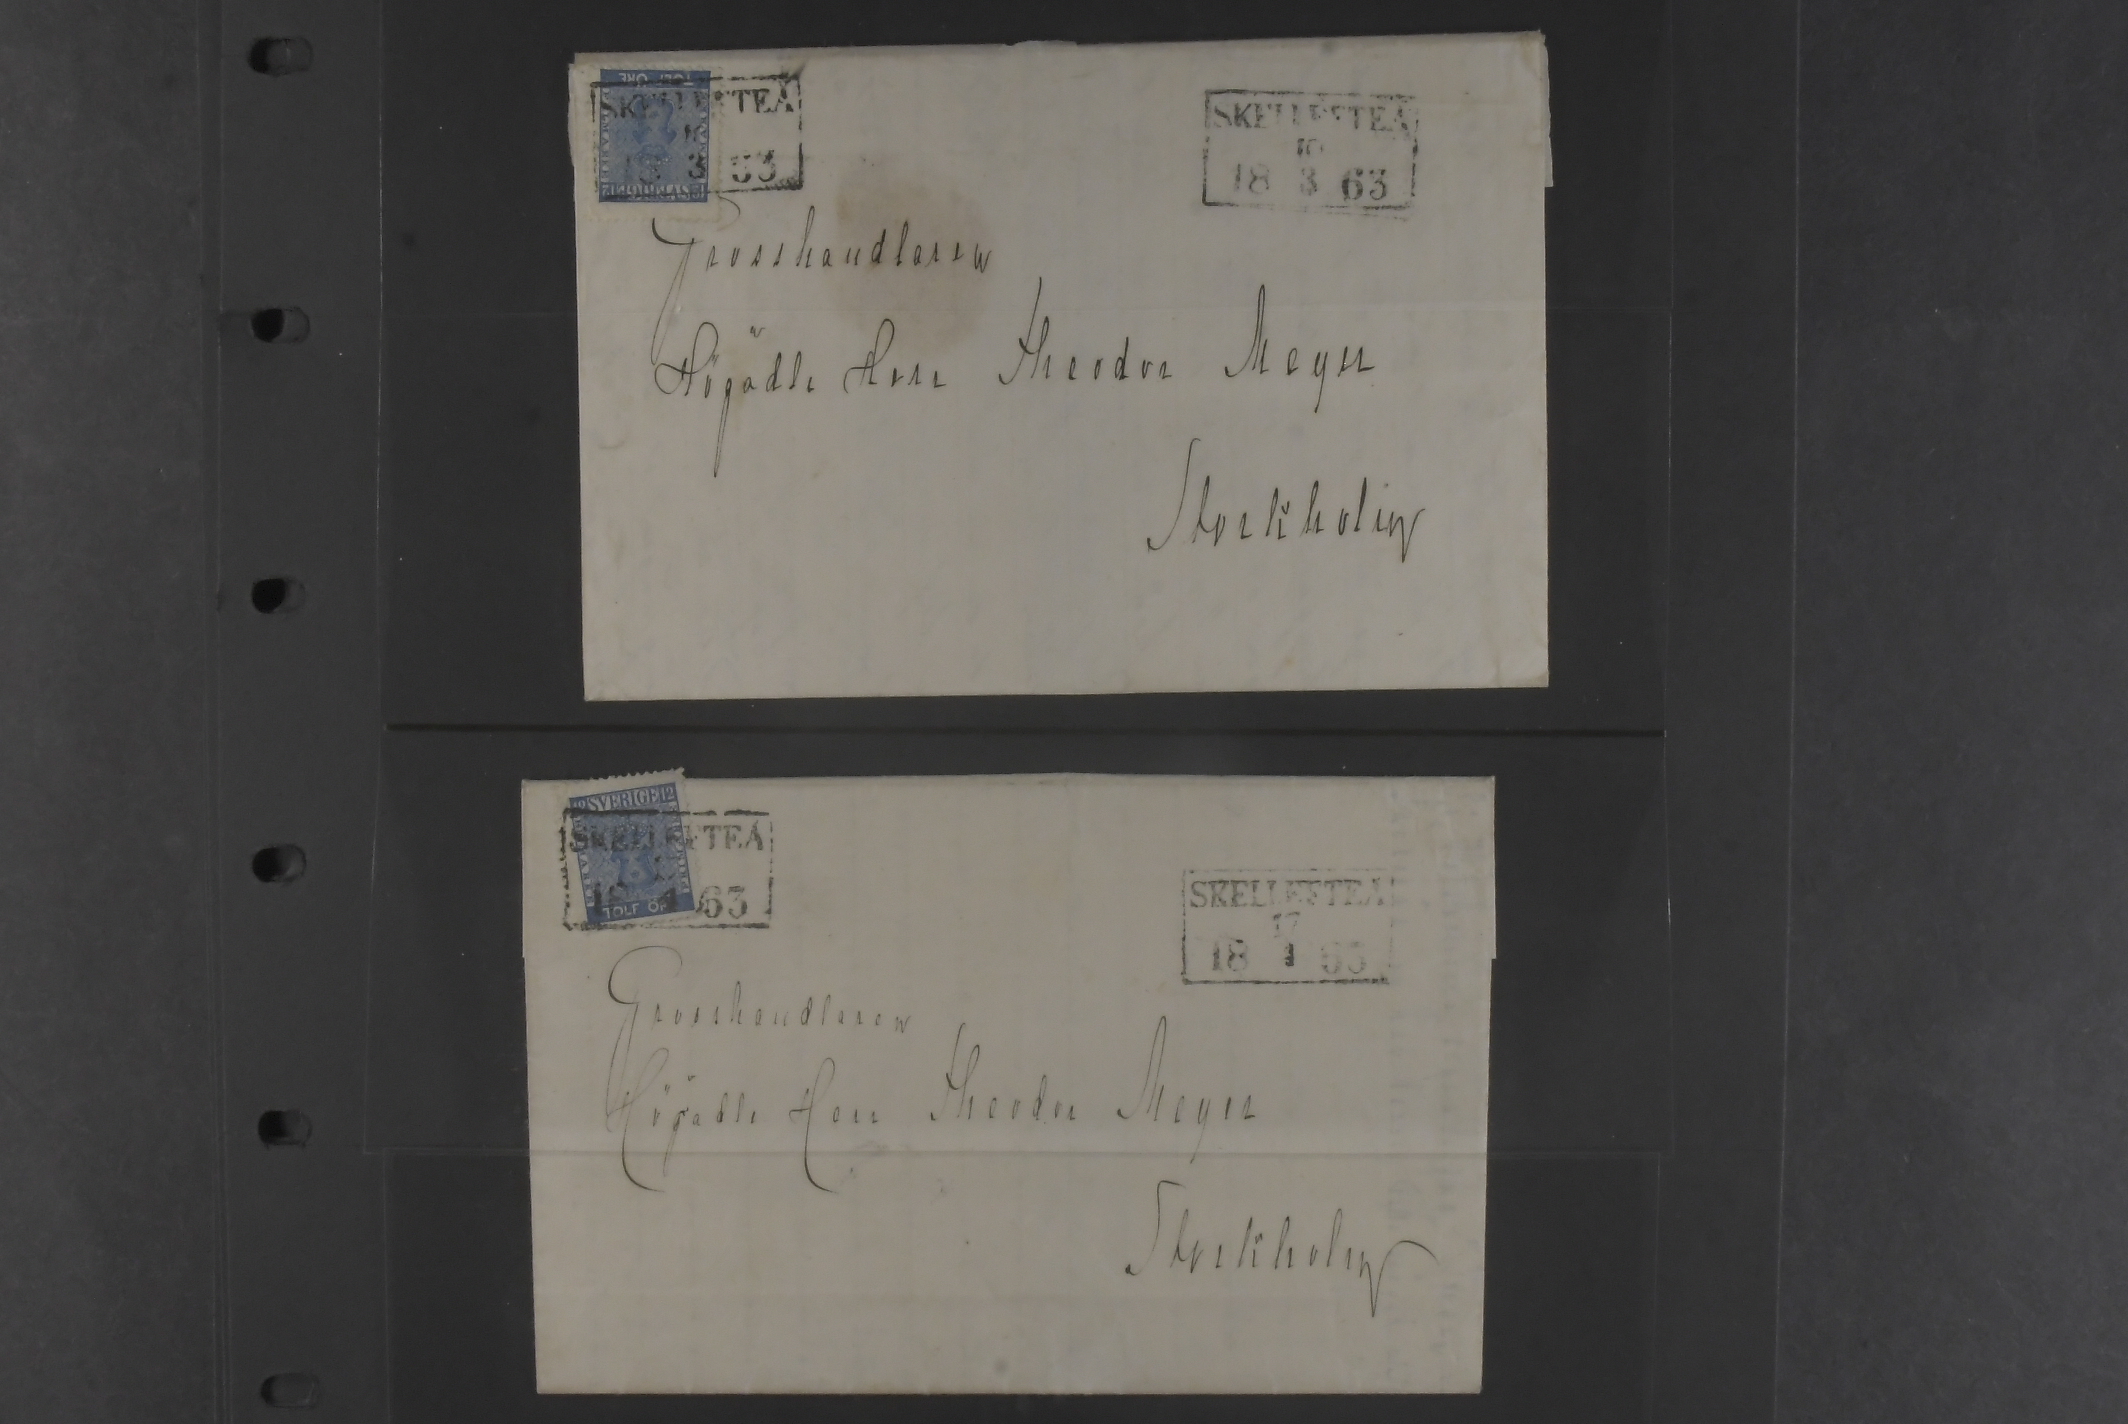 TOLF ÖRE
FRIMÄRKE
SKELLEFTEÅ
18 3 63
SKELLEFTEÅ
10
18 3 63
Grosshandlaren
Högädle Herr Theodor Meyer
Stockholm
12 SVERIGE 12
TOLF ÖR
SKELLEFTEÅ
63
SKELLEFTEÅ
17
18 1 63
Grosshandlaren
Högädle Herr Theodor Meyer
Stockholm